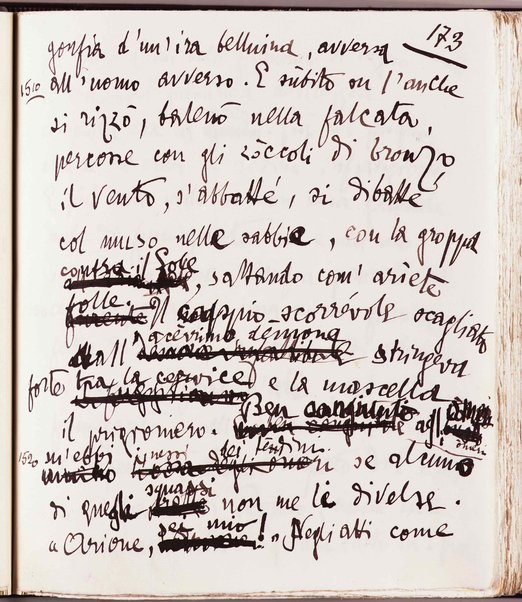 173
gonfia d'un'ira belluina, avversa
1510 all'uomo avverso. E sùbito su l'anche
si rizzò, balenò nella falcata,
percosse con gli zòccoli di bronzo
il vento, s'abbatté, si dibatté
col muso nelle sabbie, con la groppa
contra il Sole, saltando com' ariete
folle. Il cappio scorrévole scagliato
dall' acèrrimo demone stringeva
forte tra la cervice e la mascella
il prigioniero. Ben congiunto agli
1520 m'ebbi i nessi dei tendini se alcuno
di quegli squassi non me li divelse.
a Arione, per mio! " Negli atti come